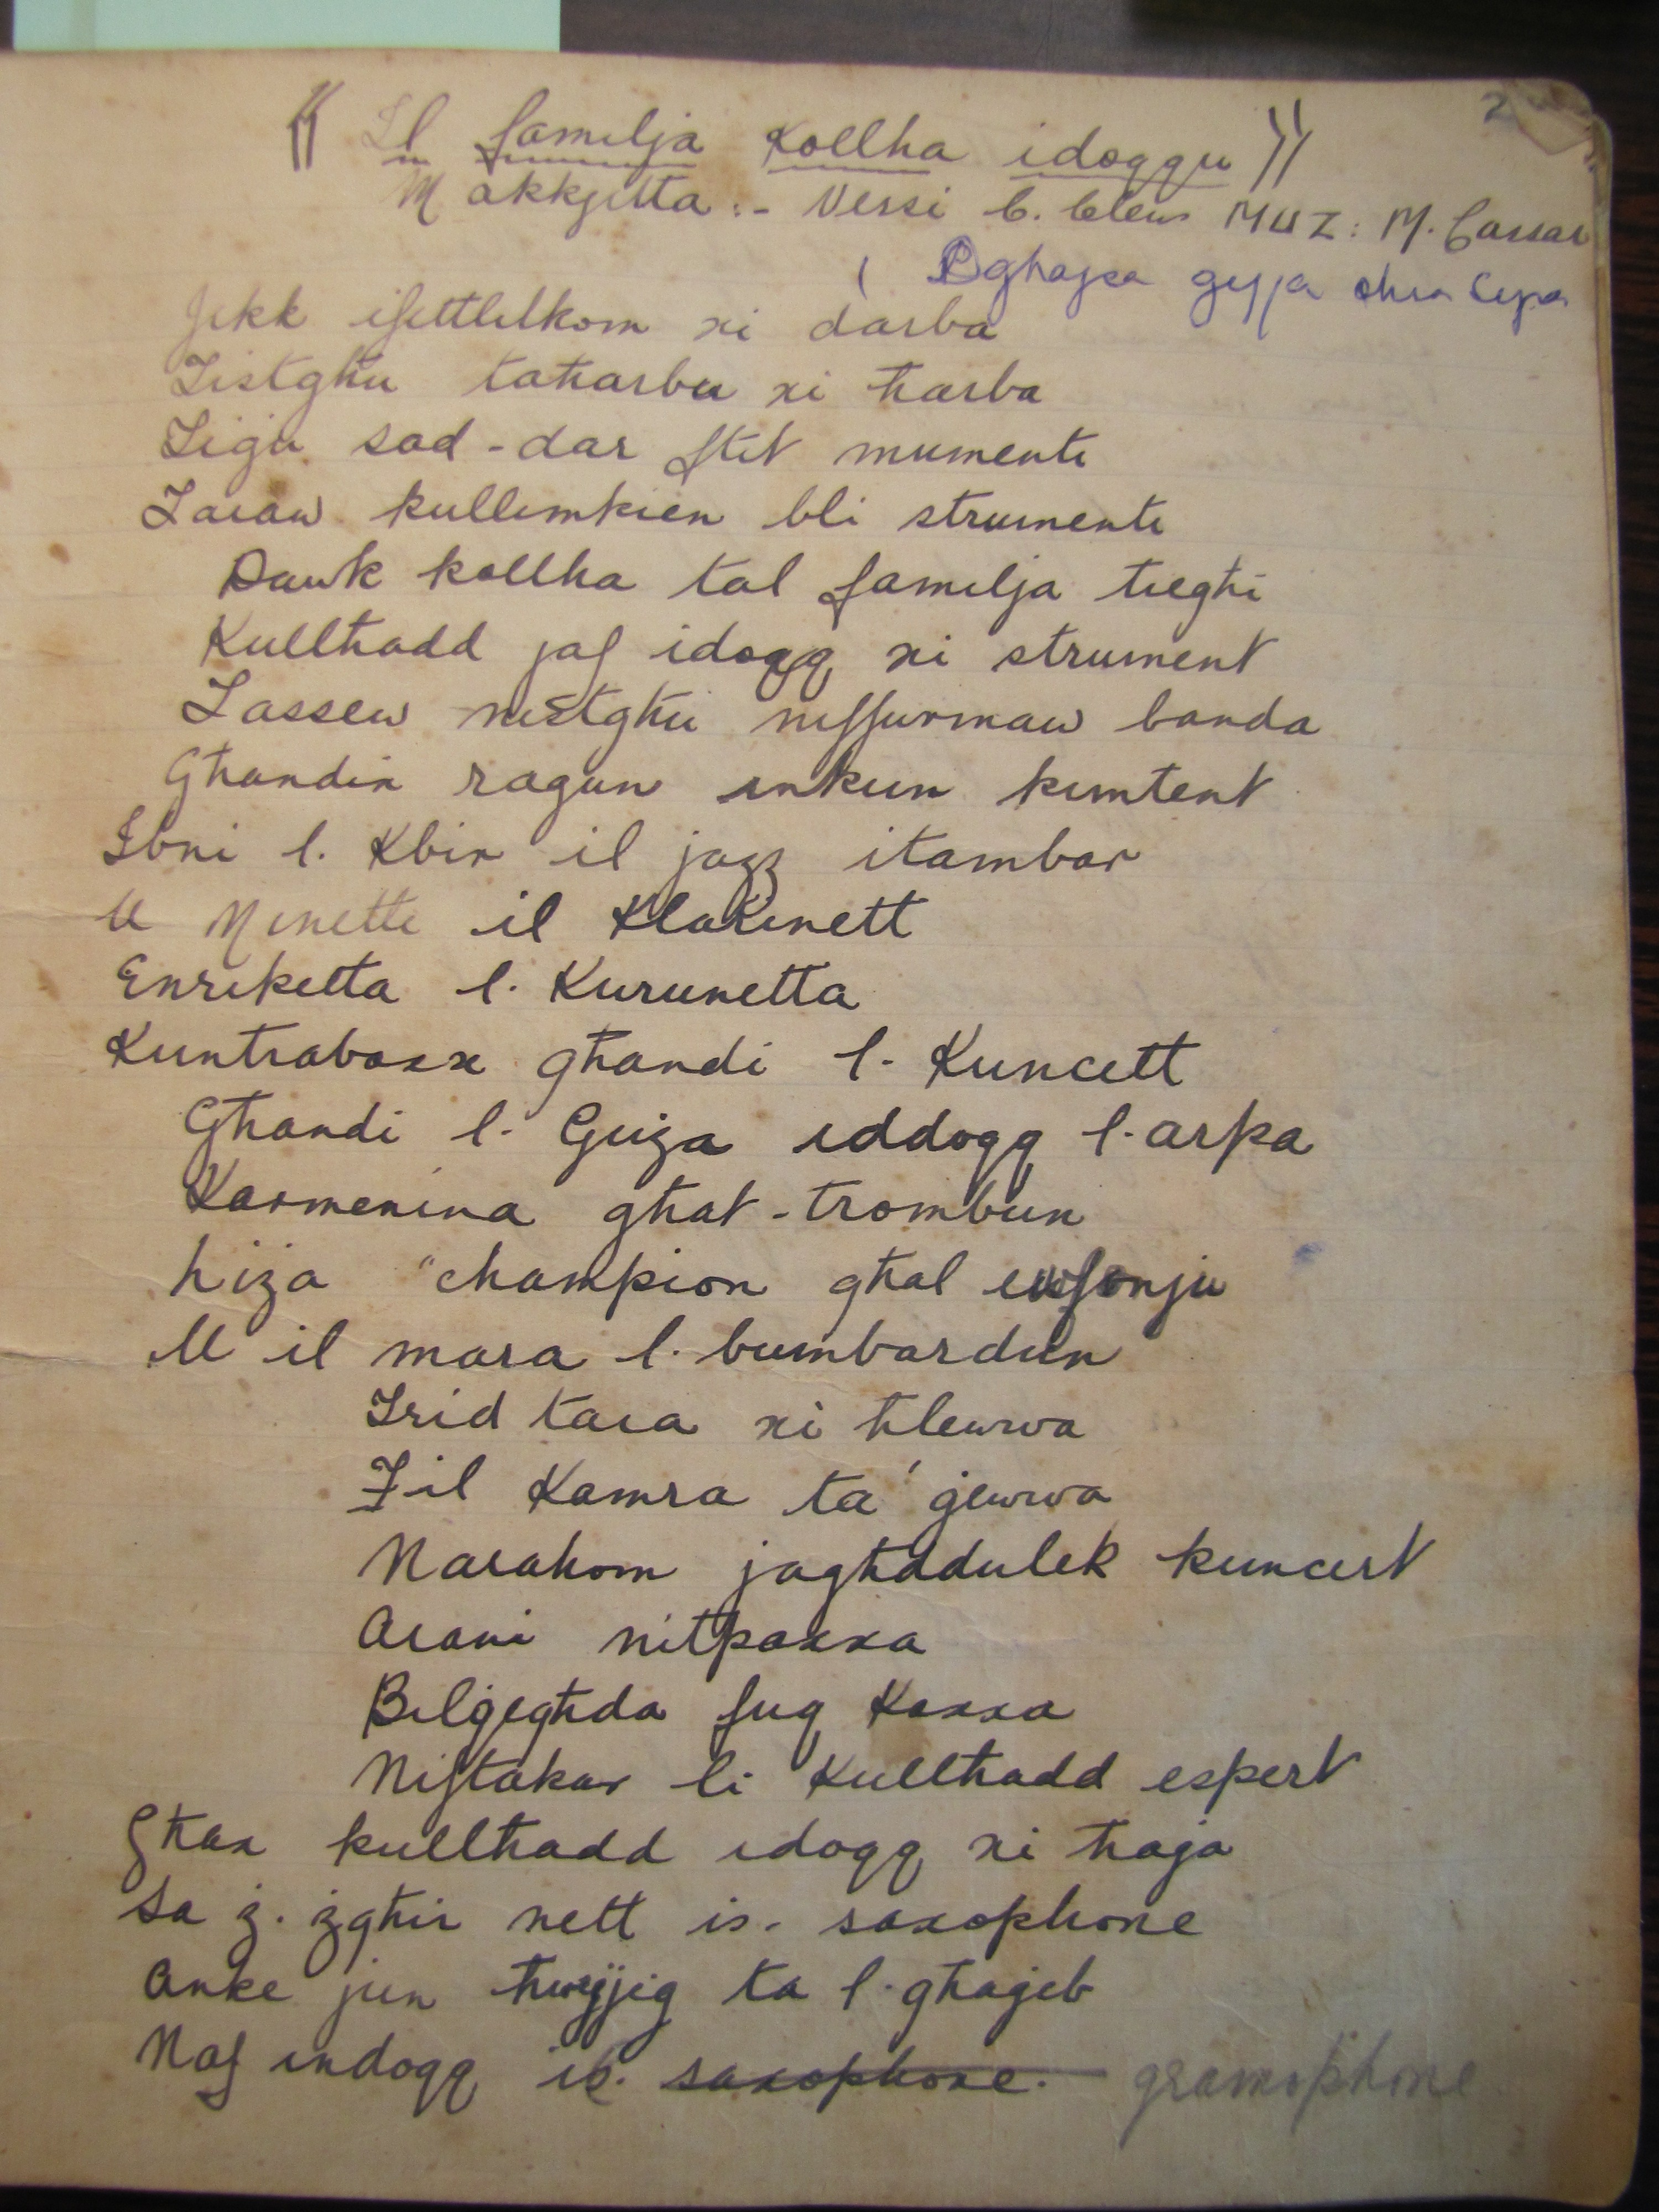 2
" Il familja kollha idoqqu "
Makkjetta :- Versi C. Clews MUZ: M. Cassar
( Dghajsa gejja ohra sejra
Jekk isettlilkom xi darba
Tistghu taħarbu xi ħarba
Tigu sad-dar ftit mumenti
Taraw kullimkien bli strumenti
Dawk kollha tal familja tieghi
Kulħadd jaf idoqq xi strument
Tassew nistghu niffurmaw banda
Għandix ragun inkun kuntent
Ibni l. Kbir il jazz itambar
U Ninetti il Klarinett
Enriketta l. Kurunetta
Kuntrabaxx għandi l- Kuncett
Għandi l- Guża iddoqq l-arpa
Karmenina għat-trombun
Liza "champion għal eufonju
U il mara l. bumbardun
Trid tara xi ħlewwa
Fil Kamra ta' gewwa
Narahom jagħddulek kuncert
Arani nitpaxxa
Bilġegħda fuq Kaxxa
Niftakar li Kulħadd espert
Għax kulħadd idoqq xi ħaġa
Sa ż. żgħir nett is- saxophone
Anke jien ħwejjeg ta l-għageb
Naf indoqq il. saxophone. gramophone